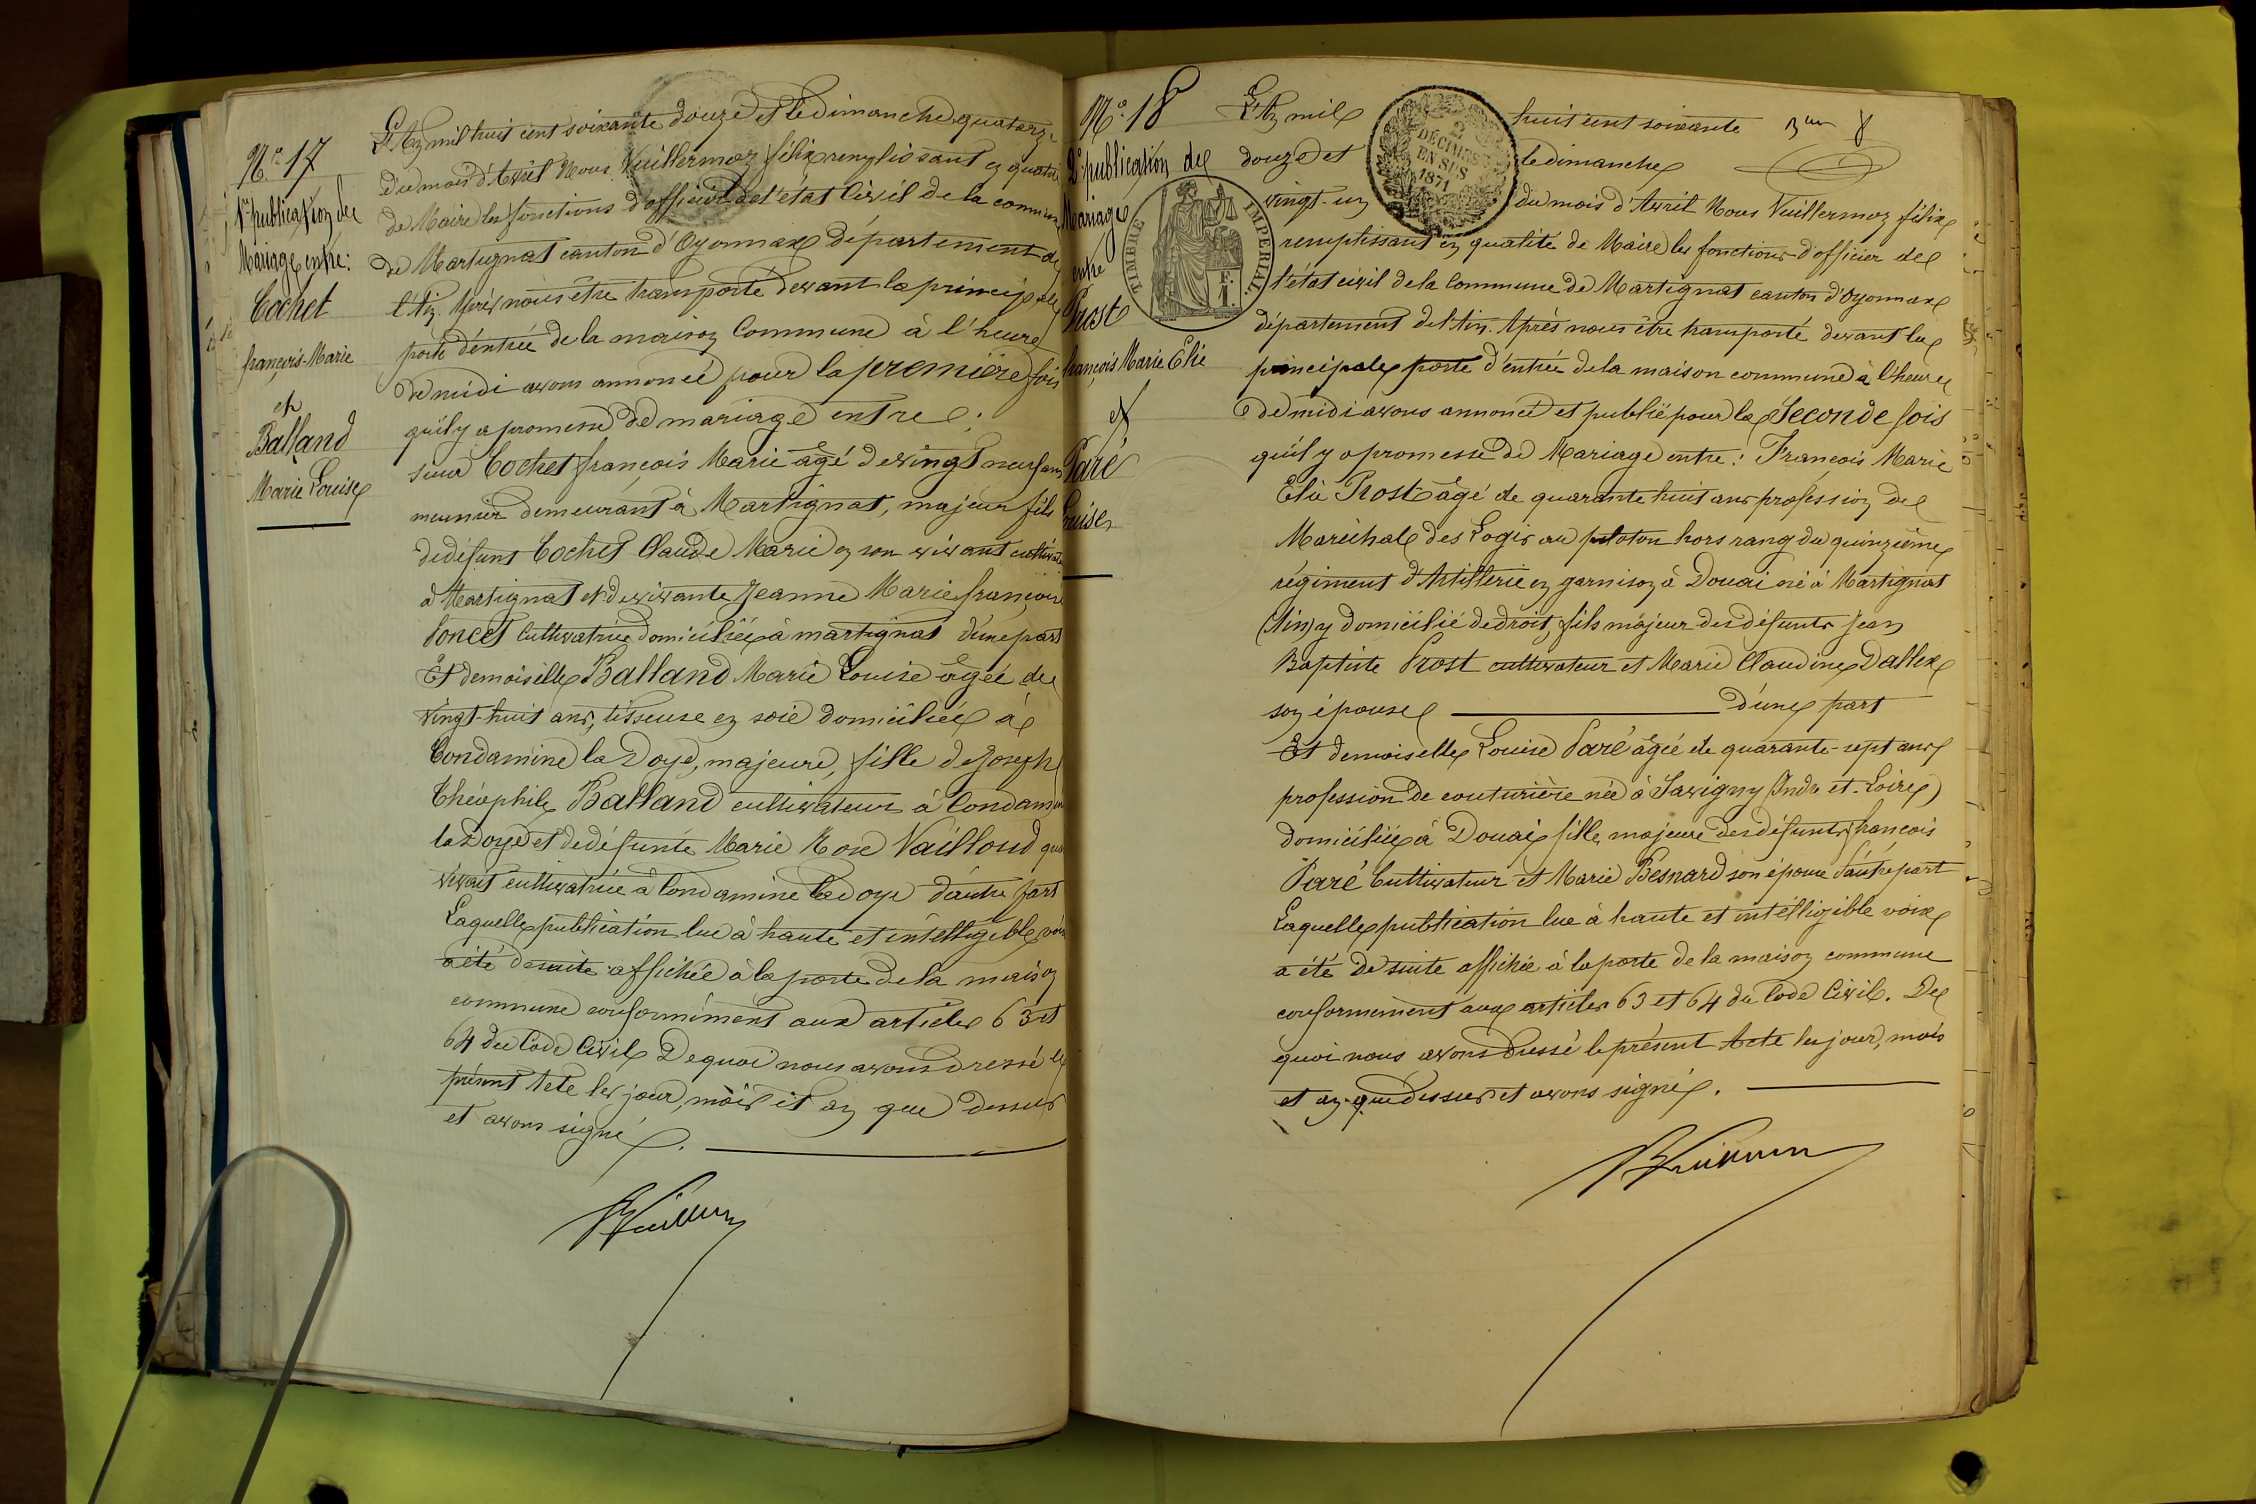 N.o 17
1re publication de
Mariage entre:
Cochet
françois-Marie
et
Balland
Marie Louise
L'An mil huit cent soixante douze et le dimanche quatorze
du mois d'Avril Nous Vuillermoz félix remplissant en qualité
de Maire les fonctions d'officier de l'état Civil de la commune
de Martignat canton d'Oyonnax département de
l'Ain. Après nous être transporté devant la principale
porte d'entrée de la maison Commune à l'heure
de midi avons annoncé pour la première fois
qu'il y a promesse de mariage entre :
sieur Cochet françois Marie âgé de vingt neuf ans
meunier demeurant à Martignat, majeur fils
de défunt Cochet Claude Marie en son vivant cultivateur
à Martignat et de vivante Jeanne Marie françoise
Poncet Cultivatrice domiciliée à martignat d'une part
Et demoiselle Balland Marie Louise âgée de
vingt-huit ans, tisseuse en soie domiciliée à
Condamine la Doye, majeure, fille de Joseph
Théophile Balland cultivateur à Condamine
la Doye et de défunte Marie Rose Vailloud qui
vivait cultivatrice à Condamine la doye d'autre part
Laquelle publication lue à haute et intelligible voix
a été de suite affichée à la porte de la maison
commune conformément aux articles 63 et
64 du Code Civil De quoi nous avons dressé le
présent Acte les jour, mois et an que dessus
et avons signé.
N.o 18
2e publication de
Mariage
entre
Prost
françois Marie Elie
et
Paré
Louise
TIMBRE IMPERIAL
2
DÉCIMES
EN SUS
1871
L'An mil huit cent soixante
douze et le dimanche
vingt-un du mois d'Avril Nous Vuillermoz félix
remplissant en qualité de Maire les fonctions d'officier de
l'état civil de la Commune de Martignat canton d'Oyonnax
département de l'Ain. Après nous être transporté devant la
principale porte d'entrée de la maison commune à l'heure
de midi avons annoncé et publié pour la Seconde fois
qu'il y a promesse de Mariage entre : François Marie
Elie Prost âgé de quarante huit ans profession de
Maréchal des Logis au peloton hors rang du quinzième
régiment d'Artillerie en garnison à Douai né à Martignat
(Ain) y domicilié de droit, fils majeur des défunts Jean
Baptiste Prost cultivateur et Marie Claudine Dallex
son épouse d'une part
Et demoiselle Louise Paré âgée de quarante-sept ans
profession de couturière née à Savigny (Indre et-Loire)
domiciliée à Douai fille majeure des défunts françois
Paré Cultivateur et Marie Besnard son épouse d'autre part
Laquelle publication lue à haute et intelligible voix
a été de suite affichée à la porte de la maison commune
conformément aux articles 63 et 64 du Code Civil. De
quoi nous avons dressé le présent Acte les jour, mois
et an que dessus et avons signé.